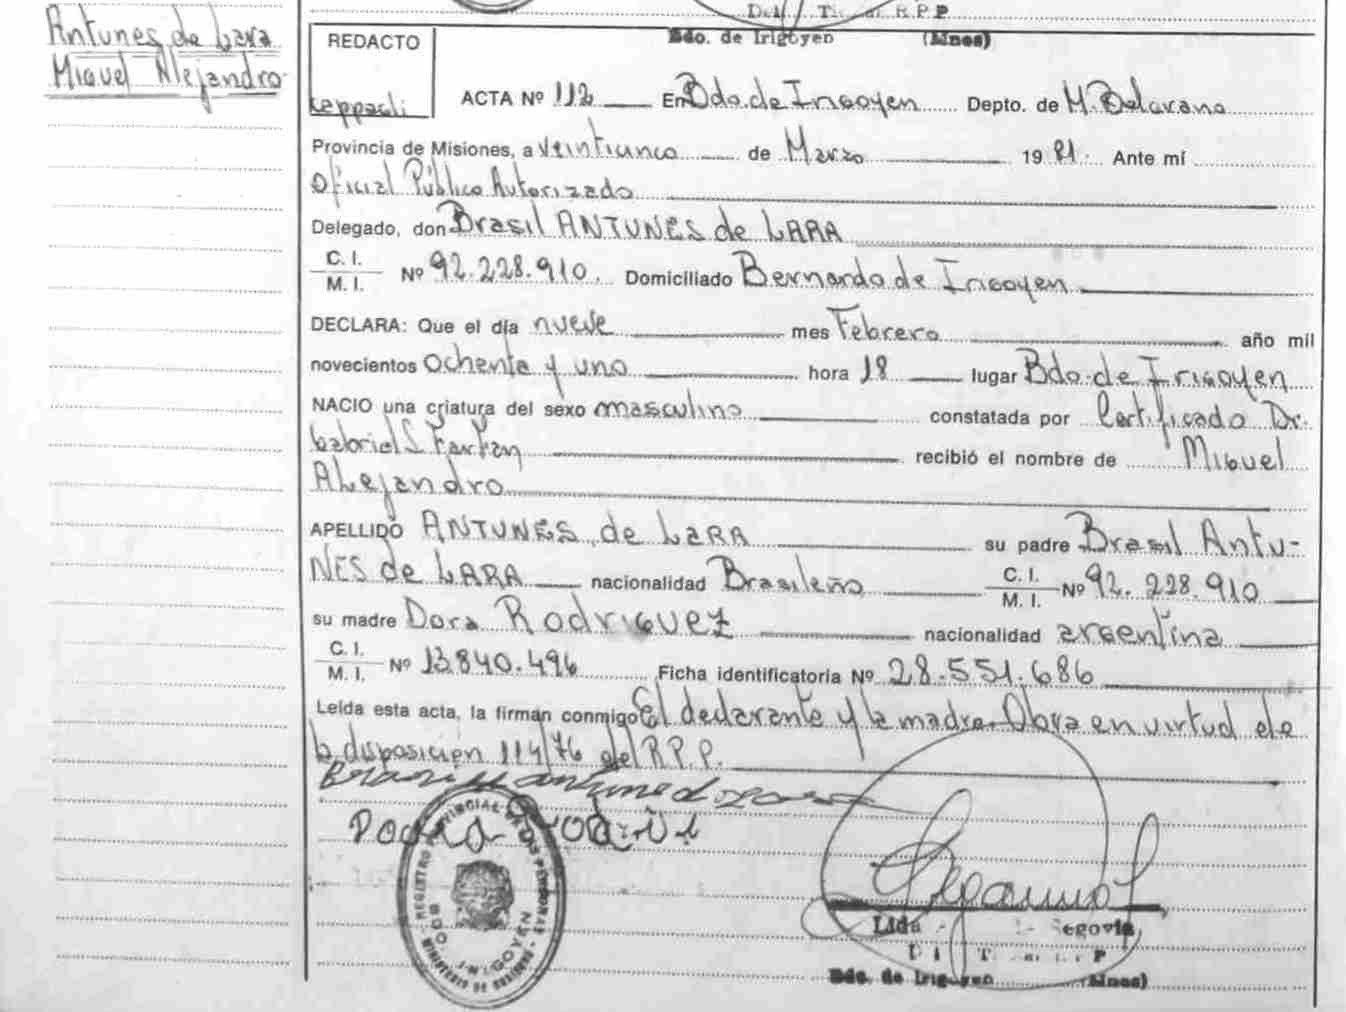 Antunes de Lara
Miguel Alejandro
R.P.P
Bdo. de Irigoyen (Mnes)
REDACTO
ACTA Nº 112 En Bdo. de Irigoyen Depto. de M. Belgrano
Provincia de Misiones, a veinticinco de Marzo 19 81. Ante mí
Oficial Público Autorizado
Delegado, don Brasil ANTUNES de LARA
C. I.
M. I. Nº 92.228.910. Domiciliado Bernardo de Irigoyen
DECLARA: Que el día nueve mes Febrero año mil
novecientos Ochenta y uno hora 18 lugar Bdo. de Irigoyen
NACIO una criatura del sexo masculino constatada por Certificado Dr.
Gabriel S. Farfan recibió el nombre de Miguel
Alejandro
APELLIDO ANTUNES de LARA su padre Brasil Antu-
NES de LARA nacionalidad Brasileño C. I.
M. I. Nº 92.228.910
su madre Dora Rodriguez nacionalidad argentina
C. I.
M. I. Nº 13.840.496 Ficha identificatoria Nº 28.551.686
Leída esta acta, la firman conmigo El declarante y la madre. Obra en virtud de
la disposición 114/76 del R.P.P.
REGISTRO PROVINCIAL DE LAS PERSONAS
MINISTERIO DE GOBIERNO
BDO. IRIGOYEN
Segovia
Bdo. de Irigoyen (Mnes)